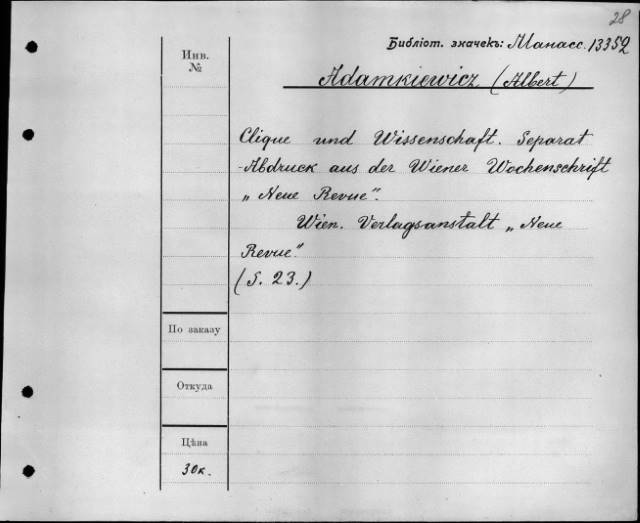 28
Библіот. значекъ: Манасс. 13352
Инв.
№
Adamkiewicz (Albert)
Clique und Wissenschaft. Separat
-Abdruck aus der Wiener Wochenschrift
„Neue Revue".
Wien. Verlagsanstalt „Neue
Revue".
(S. 23.)
По заказу
Откуда
Цѣна
30к.